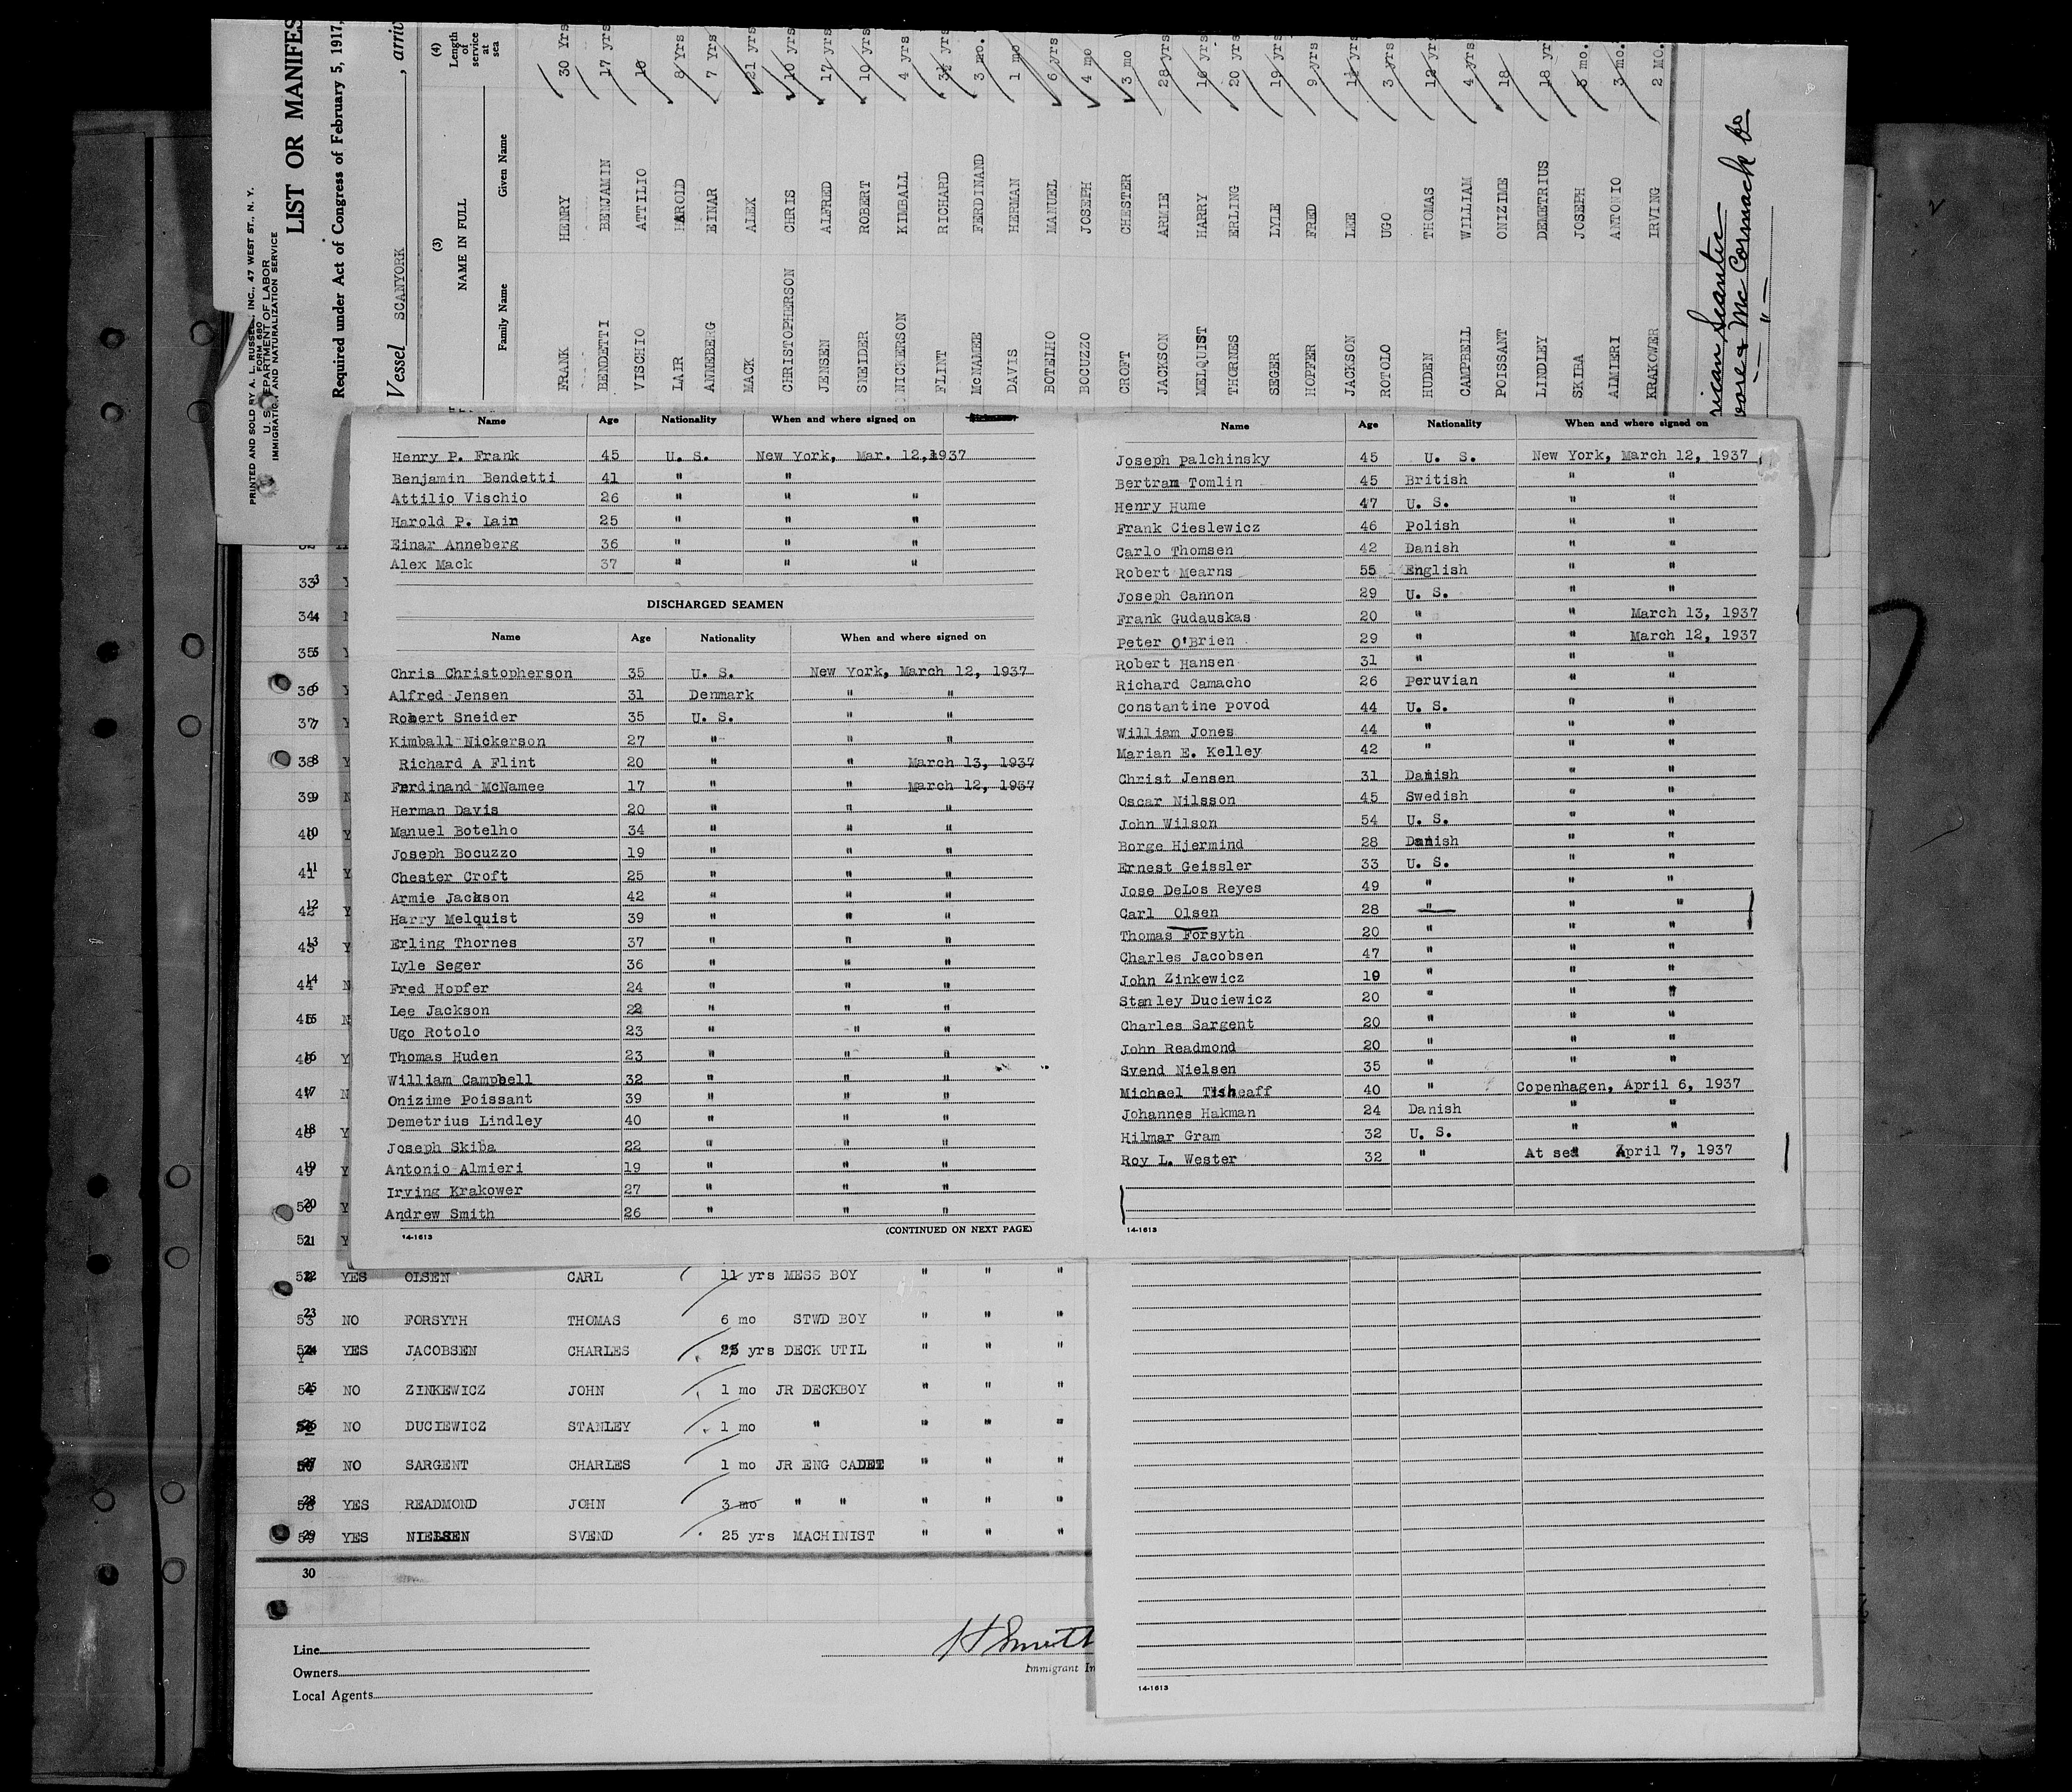 PRINTED AND SOLD BY A. L. RUSSELL, INC., 47 WEST ST., N. Y.
FORM 680
U. S. DEPARTMENT OF LABOR
IMMIGRATION AND NATURALIZATION SERVICE
LIST OR MANIFES
Required under Act of Congress of February 5, 1917,
Vessel SCANYORK , arri
(3) (4)
NAME IN FULL Length of service at sea
Family Name Given Name
FRANK HENRY 30 Yrs
BENDETTI BENJAMIN 17 yrs
VISCHIO ATTILIO 10
LAIR HAROLD 8 Yrs
ANNEBERG EINAR 7 yrs
MACK ALEX 21 yrs
CHRISTOPHERSON CHRIS 10 yrs
JENSEN ALFRED 17 yrs
SNEIDER ROBERT 10 yrs
NICKERSON KIMBALL 4 yrs
FLINT RICHARD 3½ yrs
McNAMEE FERDINAND 3 mo.
DAVIS HERMAN 1 mo
BOTELHO MANUEL 6 yrs
BOCUZZO JOSEPH 4 mo
CROFT CHESTER 3 mo
JACKSON ARMIE 28 yrs
MELQUIST HARRY 16 yrs
THORNES ERLING 20 yrs
SEGER LYLE 19 yrs
HOPFER FRED 9 yrs
JACKSON LEE 1½ yrs
ROTOLO UGO 3 yrs
HUDEN THOMAS 12 yrs
CAMPBELL WILLIAM 4 yrs
POISSANT ONIZIME 18
LINDLEY DEMETRIUS 18 yr
SKIBA JOSEPH 3 mo.
AlMIERI ANTONIO 3 mo.
KRAKOWER IRVING 2 MO.
rican Scantic
oore & Mc Cormack Co
— " —
Name Age Nationality When and where signed on
Henry P. Frank 45 U. S. New York, Mar. 12,1937
Benjamin Bendetti 41 " "
Attilio Vischio 26 " " "
Harold P. Lair 25 " " "
Einar Anneberg 36 " " "
Alex Mack 37 " " "
DISCHARGED SEAMEN
Name Age Nationality When and where signed on
Chris Christopherson 35 U. S. New York, March 12, 1937
Alfred Jensen 31 Denmark " "
Robert Sneider 35 U. S. " "
Kimball Nickerson 27 " " "
Richard A Flint 20 " " March 13, 1937
Ferdinand McNamee 17 " " March 12, 1937
Herman Davis 20 " " "
Manuel Botelho 34 " " "
Joseph Bocuzzo 19 " " "
Chester Croft 25 " " "
Armie Jackson 42 " " "
Harry Melquist 39 " " "
Erling Thornes 37 " " "
Lyle Seger 36 " " "
Fred Hopfer 24 " " "
Lee Jackson 22 " " "
Ugo Rotolo 23 " " "
Thomas Huden 23 " " "
William Campbell 32 " " "
Onizime Poissant 39 " " "
Demetrius Lindley 40 " " "
Joseph Skiba 22 " " "
Antonio Almieri 19 " " "
Irving Krakower 27 " " "
Andrew Smith 26 " " "
14-1613 (CONTINUED ON NEXT PAGE)
Name Age Nationality When and where signed on
Joseph Palchinsky 45 U. S. New York, March 12, 1937
Bertram Tomlin 45 British " "
Henry Hume 47 U. S. " "
Frank Cieslewicz 46 Polish " "
Carlo Thomsen 42 Danish " "
Robert Mearns 55 English " "
Joseph Cannon 29 U. S. " "
Frank Gudauskas 20 " " March 13, 1937
Peter O'Brien 29 " " March 12, 1937
Robert Hansen 31 " " "
Richard Camacho 26 Peruvian " "
Constantine Povod 44 U. S. " "
William Jones 44 " " "
Marian E. Kelley 42 " " "
Christ Jensen 31 Danish " "
Oscar Nilsson 45 Swedish " "
John Wilson 54 U. S. " "
Borge Hjermind 28 Danish " "
Ernest Geissler 33 U. S. " "
Jose DeLos Reyes 49 " " "
Carl Olsen 28 " " "
Thomas Forsyth 20 " " "
Charles Jacobsen 47 " " "
John Zinkewicz 19 " " "
Stanley Duciewicz 20 " " "
Charles Sargent 20 " " "
John Readmond 20 " " "
Svend Nielsen 35 " " "
Michael Tisheaff 40 " Copenhagen, April 6, 1937
Johannes Hakman 24 Danish " "
Hilmar Gram 32 U. S. " "
Roy L. Wester 32 " At sea April 7, 1937
14-1613
33 Y
34
35
36
37
38
39
40
41
42
43
44
45
46
47
48
49
50
51
22 YES OLSEN CARL 11 yrs MESS BOY " " "
23 NO FORSYTH THOMAS 6 mo STWD BOY " " "
24 YES JACOBSEN CHARLES yrs DECK UTIL " " "
25 NO ZINKEWICZ JOHN 1 mo JR DECKBOY " " "
26 NO DUCIEWICZ STANLEY 1 mo " " " "
27 NO SARGENT CHARLES 1 mo JR ENG CADET " " "
28 YES READMOND JOHN 3 mo " " " " "
29 YES NIELSEN SVEND 25 yrs MACHINIST " " "
30
Line
Owners
Local Agents
H Smith
Immigrant In
14-1613